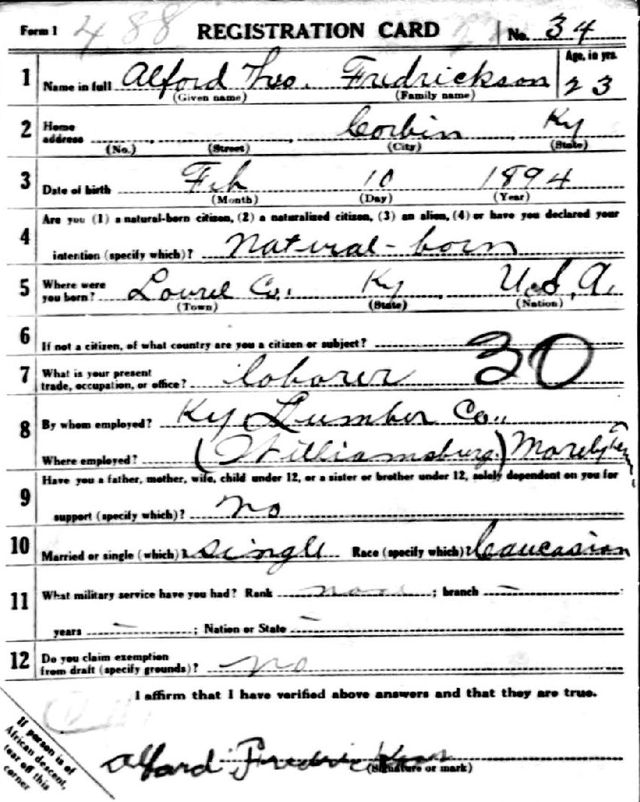 Form 1 488 REGISTRATION CARD No. 34
1 Name in full Alford Fredrickson Age, in yrs. 23
(Given name) (Family name)
2 Home address Corbin, Ky
(No.) (Street) (City) (State)
3 Date of birth Feb 10 1894
(Month) (Day) (Year)
4 Are you (1) a natural-born citizen, (2) a naturalized citizen, (3) an alien, (4) or have you declared your
intention (specify which)? Natural-born
5 Where were you born? Laurel Co. Ky U.S.A.
(Town) (State) (Nation)
6 If not a citizen, of what country are you a citizen or subject?
7 What is your present trade, occupation, or office? laborer 30
8 By whom employed? Ky Lumber Co.,
Where employed? (Williamsburg)
9 Have you a father, mother, wife, child under 12, or a sister or brother under 12, solely dependent on you for
support (specify which)? no
10 Married or single (which)? single Race (specify which)? Caucasian
11 What military service have you had? Rank none ; branch –
years – ; Nation or State –
12 Do you claim exemption from draft (specify grounds)? no
I affirm that I have verified above answers and that they are true.
Alford Fredrickson
(Signature or mark)
If person is of
African descent,
tear off this
corner